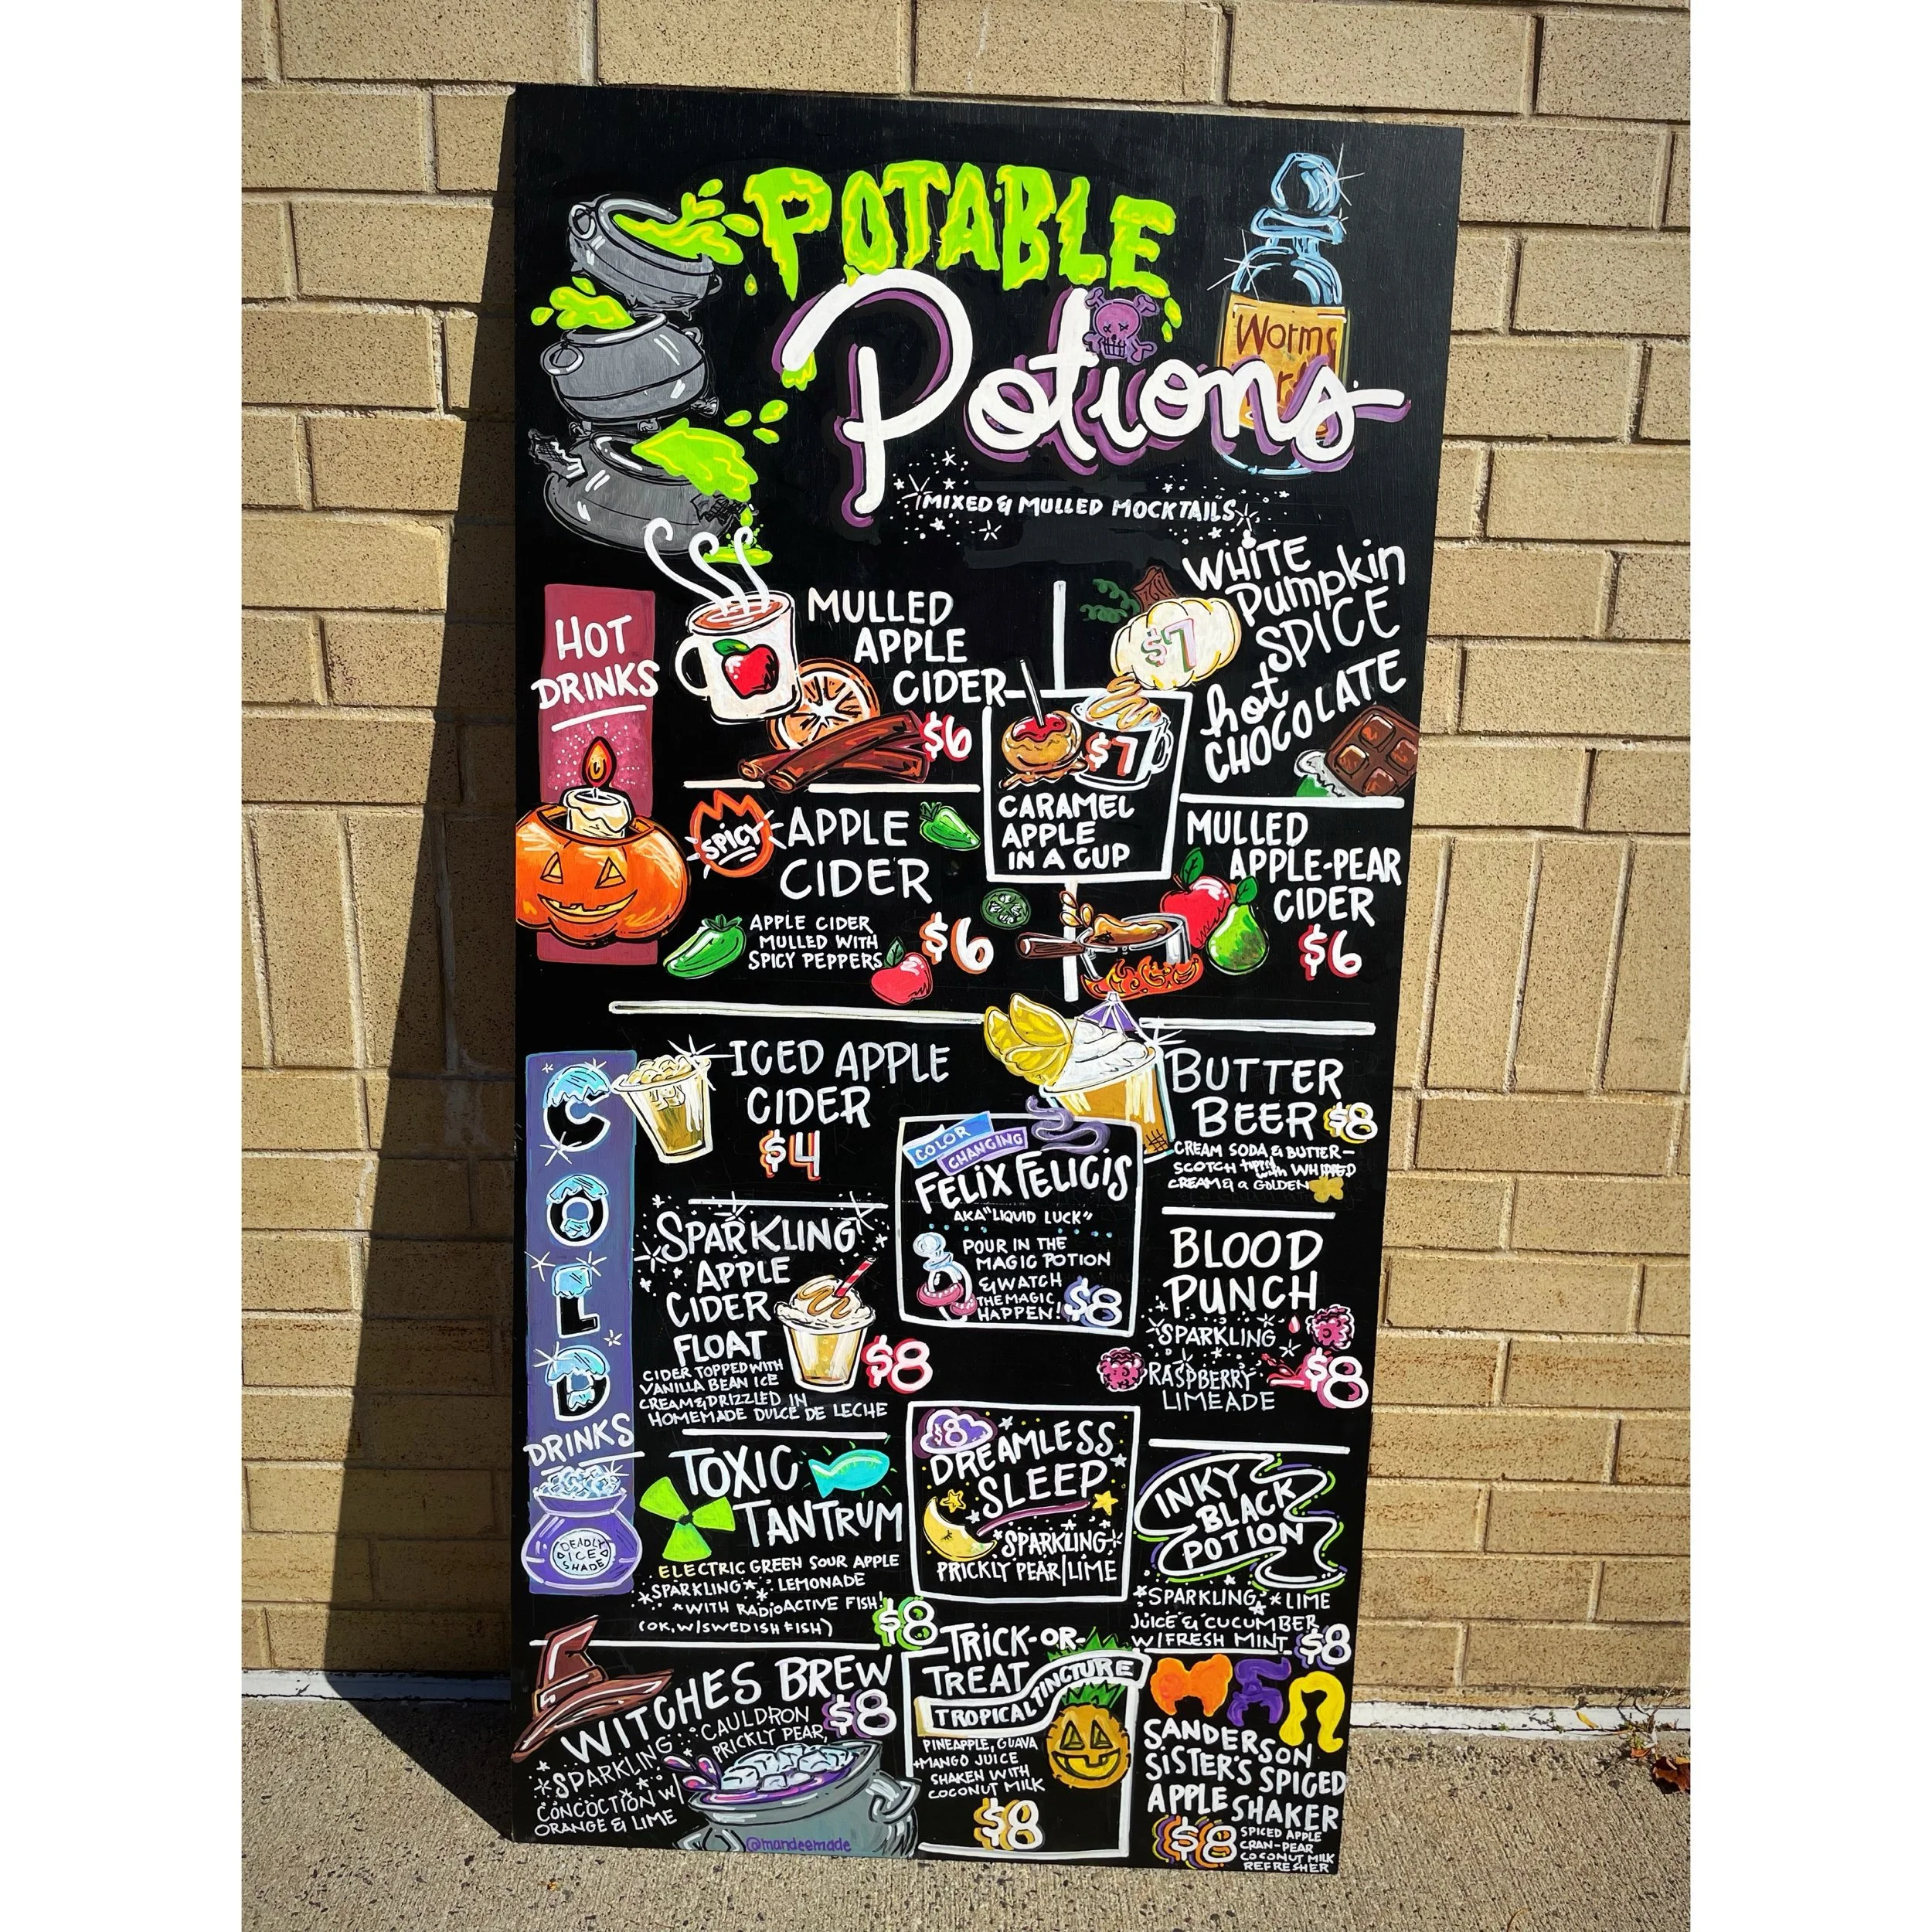 POTABLE
Potions
Worms
MIXED & MULLED MOCKTAILS
HOT
DRINKS
MULLED
APPLE
CIDER
$6
WHITE
Pumpkin
SPICE
hot
CHOCOLATE
$7
$7
CARAMEL
APPLE
IN A CUP
SPICY
APPLE
CIDER
APPLE CIDER
MULLED WITH
SPICY PEPPERS
$6
MULLED
APPLE-PEAR
CIDER
$6
COLD
DRINKS
DEADLY
ICE
SHADE
ICED APPLE
CIDER
$4
BUTTER
BEER $8
CREAM SODA & BUTTER-
SCOTCH topped with WHIPPED
CREAM & a GOLDEN
COLOR
CHANGING
FELIX FELICIS
AKA "LIQUID LUCK"
POUR IN THE
MAGIC POTION
& WATCH
THE MAGIC
HAPPEN! $8
SPARKLING
APPLE
CIDER
FLOAT
$8
CIDER TOPPED WITH
VANILLA BEAN ICE
CREAM & DRIZZLED IN
HOMEMADE DULCE DE LECHE
BLOOD
PUNCH
SPARKLING
RASPBERRY
LIMEADE
$8
TOXIC
TANTRUM
ELECTRIC GREEN SOUR APPLE
SPARKLING LEMONADE
WITH RADIOACTIVE FISH!
(OK, W/SWEDISH FISH)
$8
$8
DREAMLESS
SLEEP
SPARKLING
PRICKLY PEAR/LIME
INKY
BLACK
POTION
SPARKLING LIME
JUICE & CUCUMBER
W/FRESH MINT $8
WITCHES BREW
$8
SPARKLING CAULDRON
PRICKLY PEAR,
CONCOCTION W/
ORANGE & LIME
@mandeemade
TRICK-OR-
TREAT
TROPICAL TINCTURE
PINEAPPLE, GUAVA
+MANGO JUICE
SHAKEN WITH
COCONUT MILK
$8
SANDERSON
SISTER'S SPICED
APPLE SHAKER
$8
SPICED APPLE
CRAN-PEAR
COCONUT MILK
REFRESHER